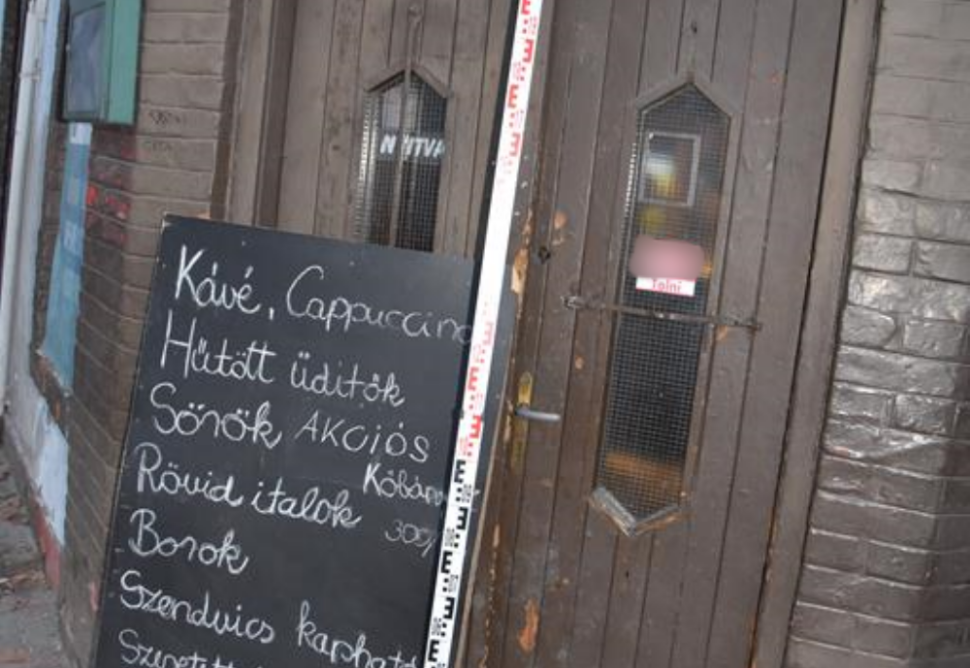 NYITVA
Tolni
Kávé, Cappuccino
Hűtött üditők
Sörök AKCIÓS
Rövid italok
Borok
Szendvics kapható